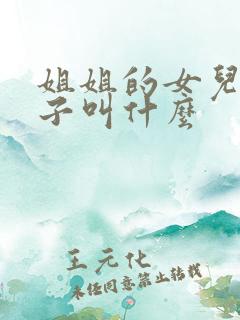 姐姐的女兒
子叫什麼
王元化
未經同意禁止轉載